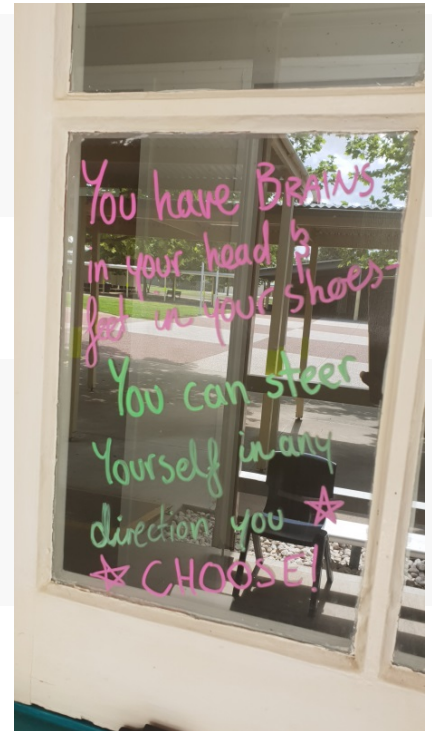 You have BRAINS
in your head &
feet in your shoes-
You can steer
Yourself in any
direction you ☆
☆ CHOOSE!